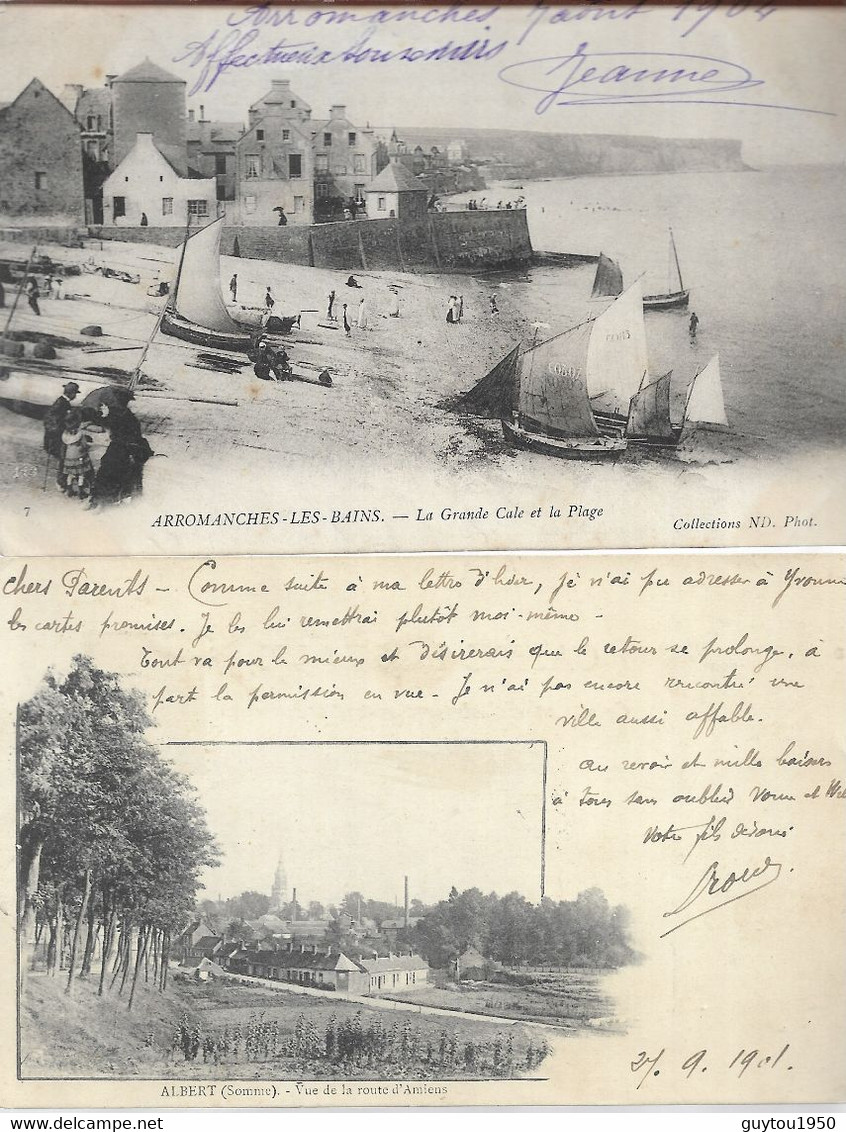 Arromanches 7 août 1904
Affectueux souvenirs
Jeanne
COBOZ
7
ARROMANCHES-LES-BAINS. — La Grande Cale et la Plage
Collections ND. Phot.
chers Parents — Comme suite à ma lettre d'hier, je n'ai pu adresser à Yvonne
les cartes promises. Je les lui remettrai plutôt moi-même —
Tout va pour le mieux et désirerais que le retour se prolonge, à
part la permission en vue — Je n'ai pas encore rencontré une
ville aussi affable.
au revoir et mille baisers
à tous sans oublier et
Votre fils dévoué
27. 9. 1901.
ALBERT (Somme). - Vue de la route d'Amiens
guytou1950